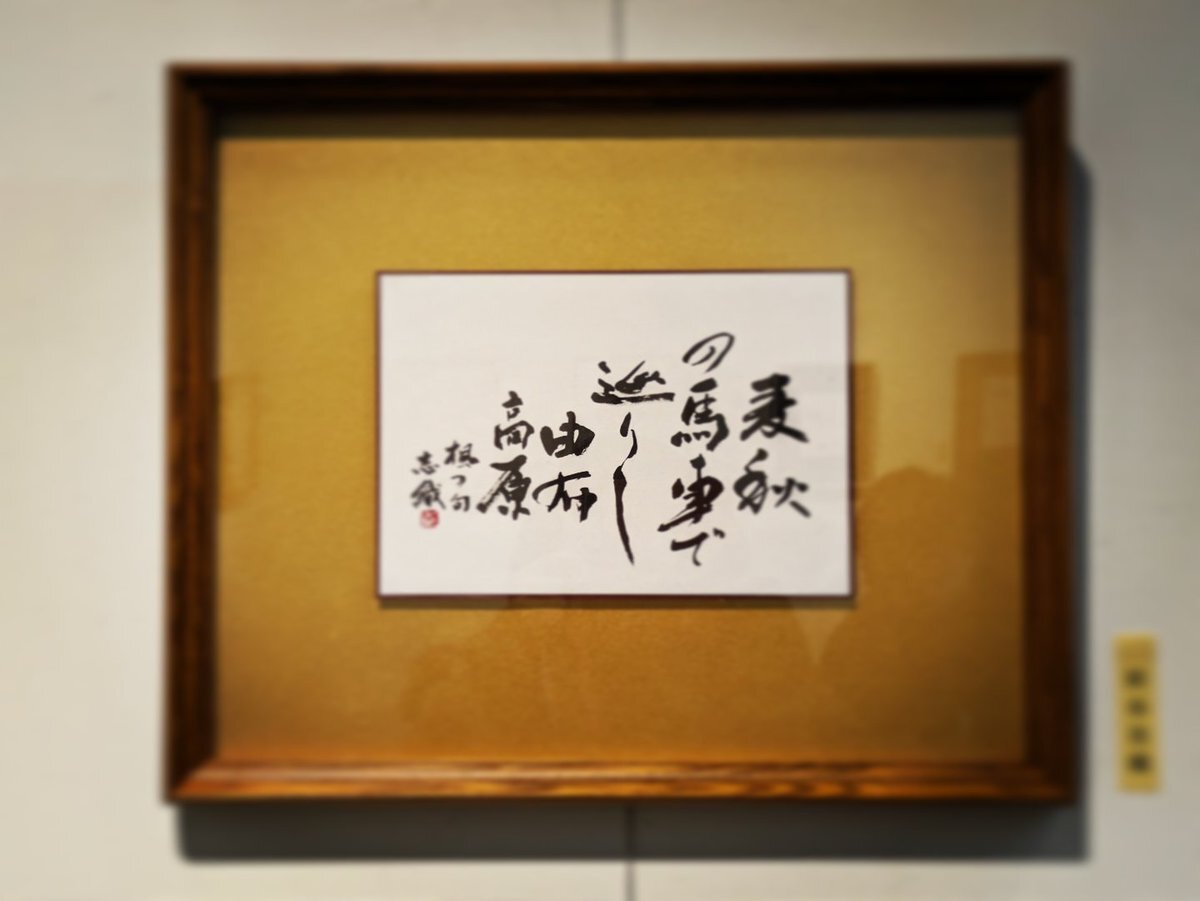 麦秋
の馬車で
巡りし
由布
高原
楓の句
志織